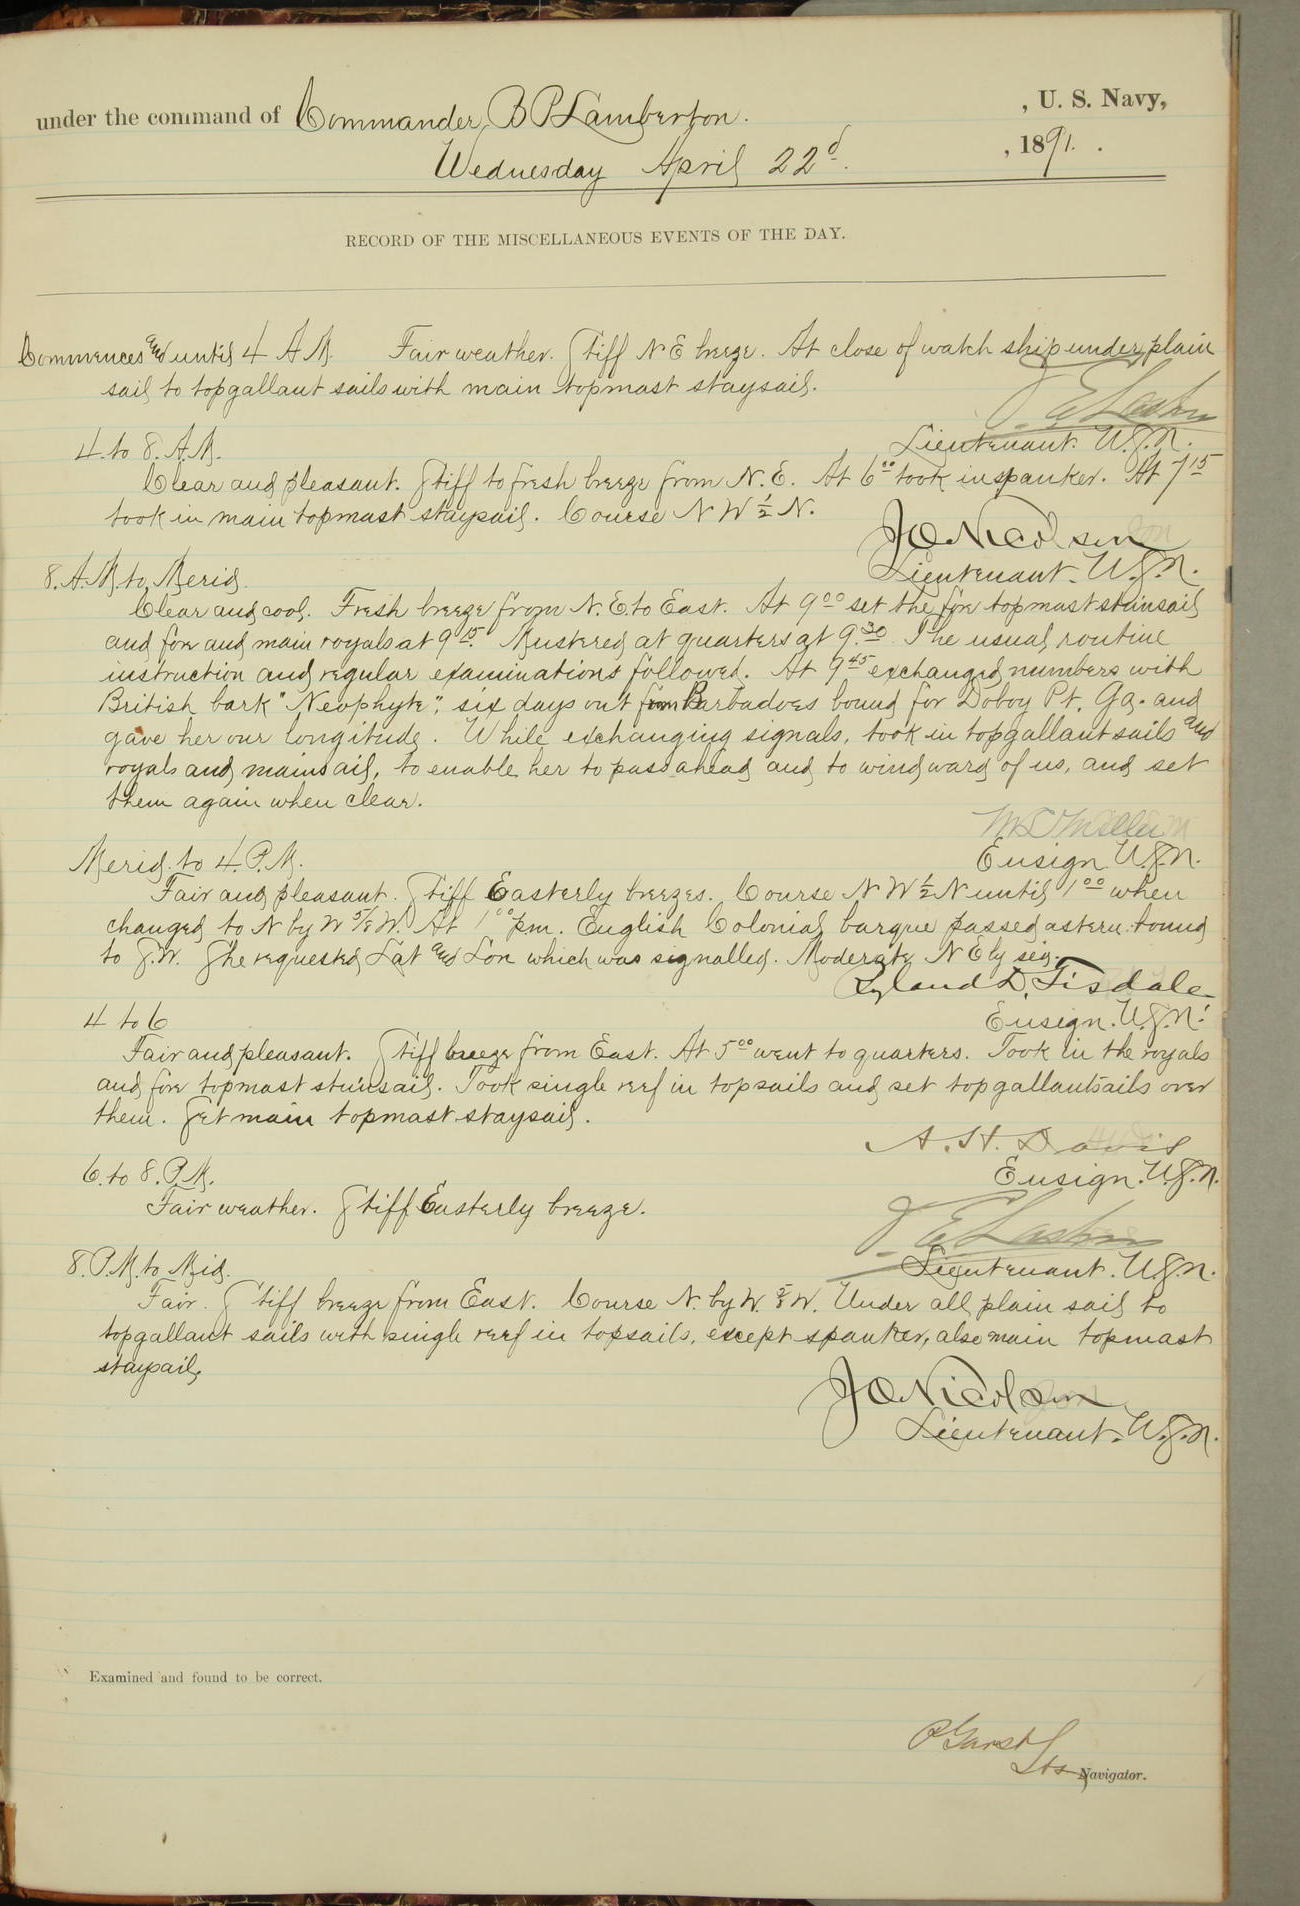 under the command of Commander, B P Lamberton. , U. S. Navy,
Wednesday April 22d. , 1891.
RECORD OF THE MISCELLANEOUS EVENTS OF THE DAY.
Commences and until 4 A M. Fair weather. Stiff N E breeze. At close of watch ship under plain
sail to topgallant sails with main topmast staysail.
4 to 8. A.M. Lieutenant. U.S.N.
Clear and pleasant. Stiff to fresh breeze from N.E. At 6 00 took in spanker. At 7 15
took in main topmast staysail. Course N W 1/2 N.
J O Nicolson
8. A.M. to Merid. Lieutenant. U.S.N.
Clear and cool. Fresh breeze from N.E. to East. At 9 00 set the fore topmast stunsail
and fore and main royals at 9 15. Mustered at quarters at 9.30. The usual routine
instruction and regular examinations followed. At 9 45 exchanged numbers with
British bark "Neophyte", six days out from Barbadoes bound for Doboy Pt. Ga. and
gave her our longitude. While exchanging signals, took in topgallant sails and
royals and mainsail, to enable her to pass ahead and to windward of us, and set
them again when clear.
Merid. to 4. P.M. Ensign U.S.N.
Fair and pleasant. Stiff Easterly breezes. Course N W 1/2 N until 1 00 when
changed to N by W 5/8 W. At 1 00 pm. English Colonial barque passed astern bound
to S.W. She requested Lat and Lon which was signalled. Moderate N Ely sea.
Ryland D. Tisdale
4 to 6 Ensign. U.S.N.
Fair and pleasant. Stiff breeze from East. At 5 00 went to quarters. Took in the royals
and fore topmast stunsail. Took single reef in topsails and set topgallantsails over
them. Set main topmast staysail.
A. H. Davis
6. to 8. P.M. Ensign. U.S.N.
Fair weather. Stiff Easterly breeze.
8. P.M. to Mid. Lieutenant. U.S.N.
Fair. Stiff breeze from East. Course N. by W. W. Under all plain sail to
topgallant sails with single reef in topsails, except spanker, also main topmast
staysail.
J O Nicolson
Lieutenant. U.S.N.
Examined and found to be correct.
P Garst
Navigator.